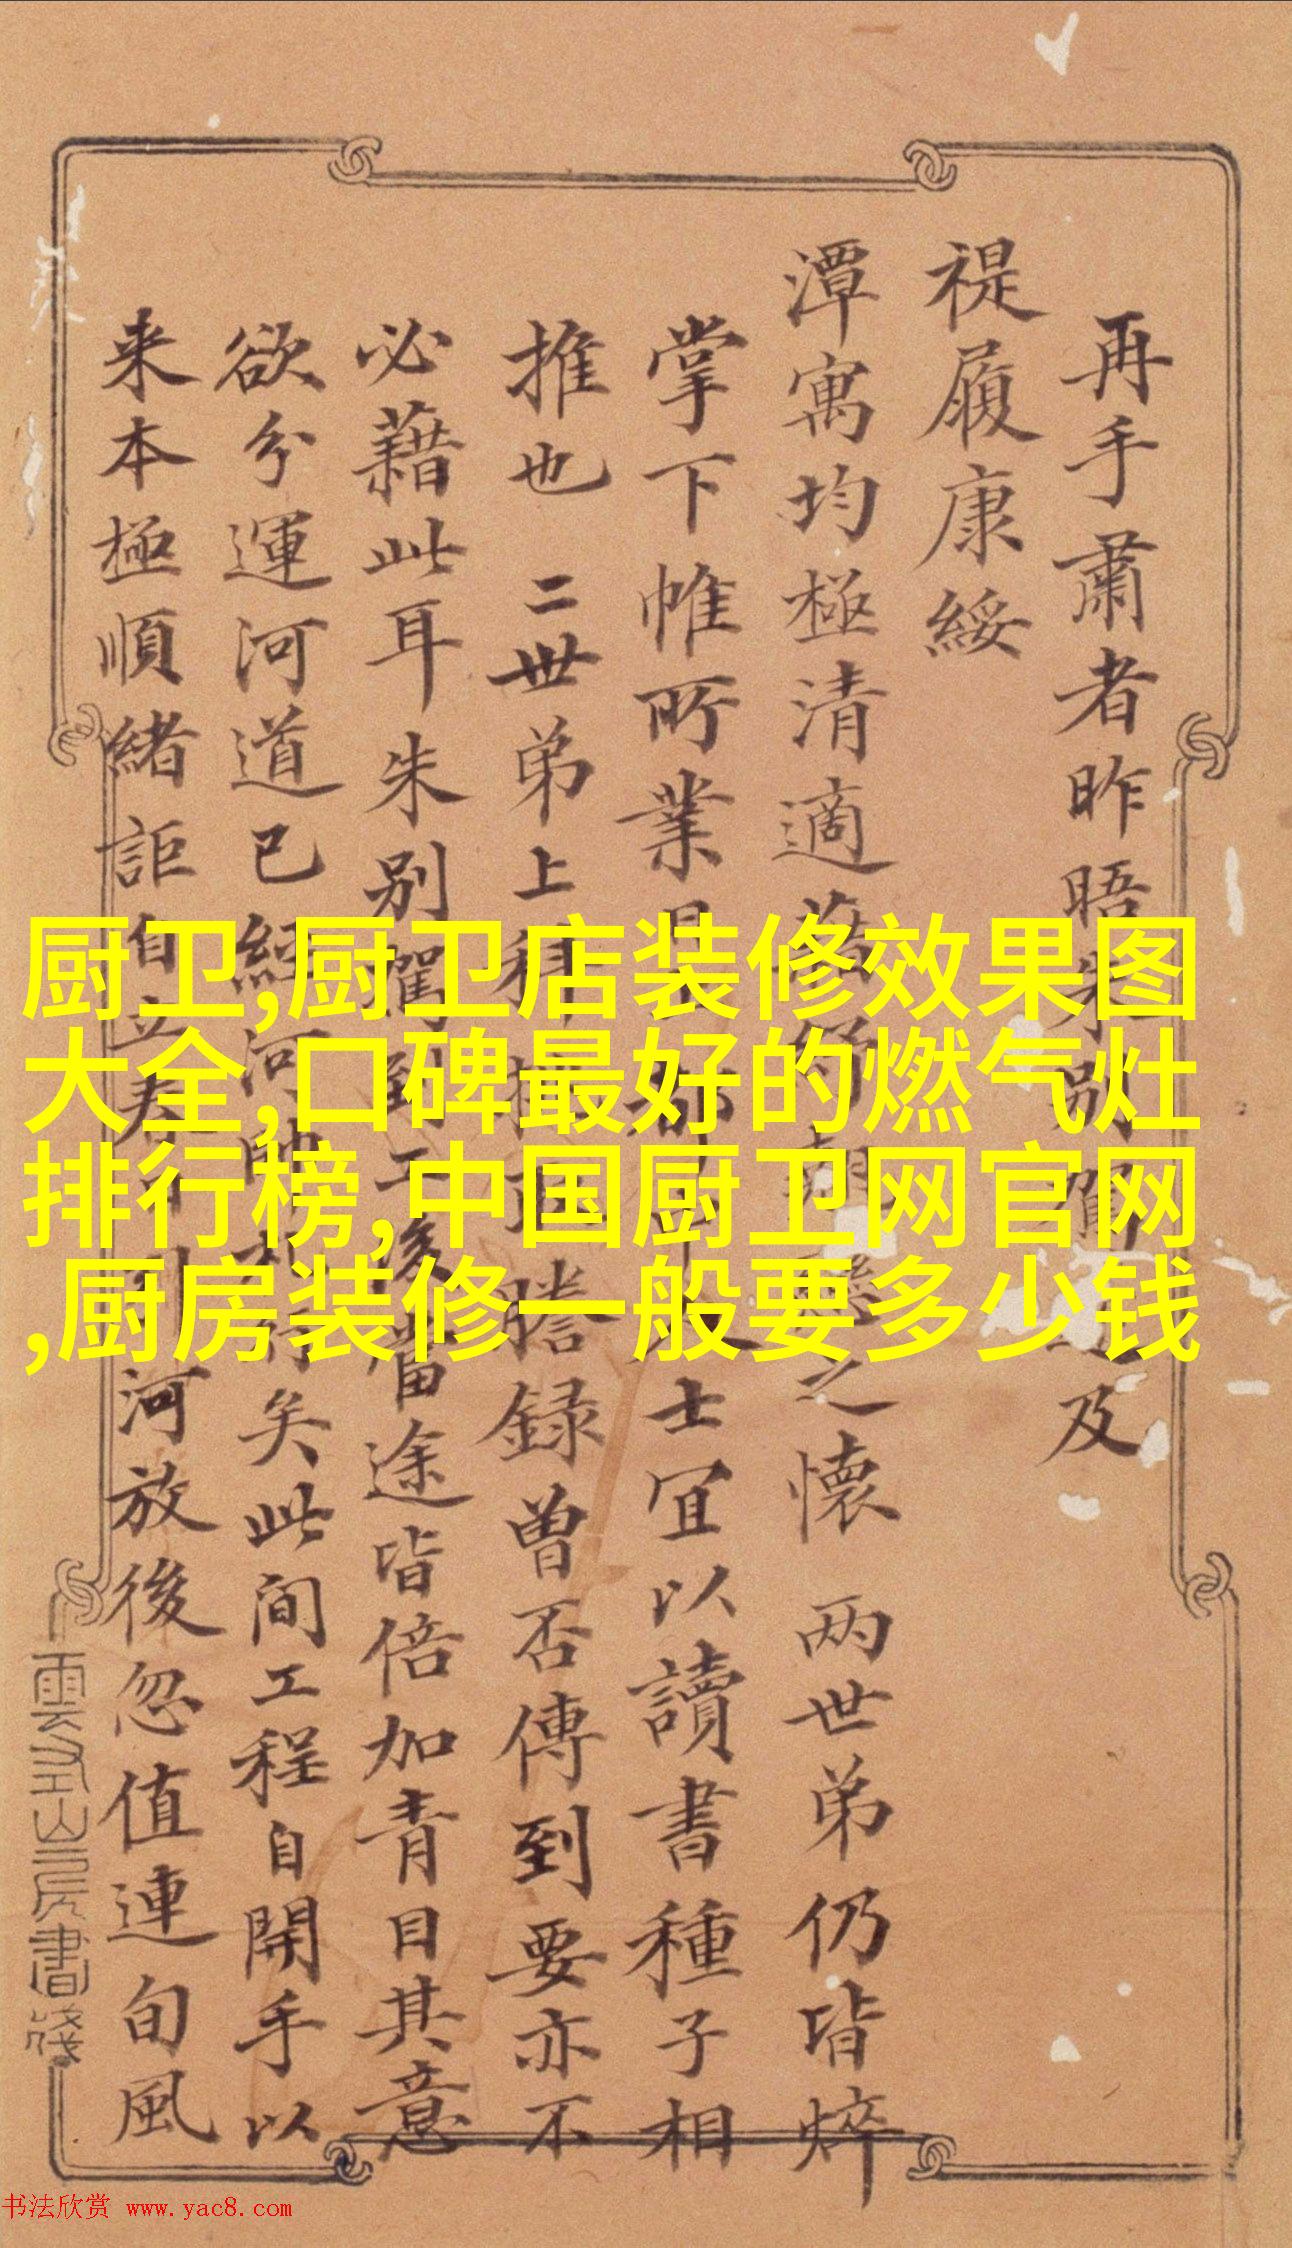 再手肅者昨晤朱别駕
及
禔履康綏
潭寓均極清適
之懷 两世弟仍皆焠
掌下帷所業日
士宜以讀書種子相
推也 二世弟上科
謄錄曾否傳到要亦不
必藉此耳朱别駕到工後當途皆倍加青目其意
欲分運河道已經河帥
矣此间工程自開手以
来本極順緒詎自立春
河放後忽值連旬風
雲叏山房書箋
厨卫,厨卫店装修效果图
大全,口碑最好的燃气灶
排行榜,中国厨卫网官网
,厨房装修一般要多少钱
书法欣赏 www.yac8.com